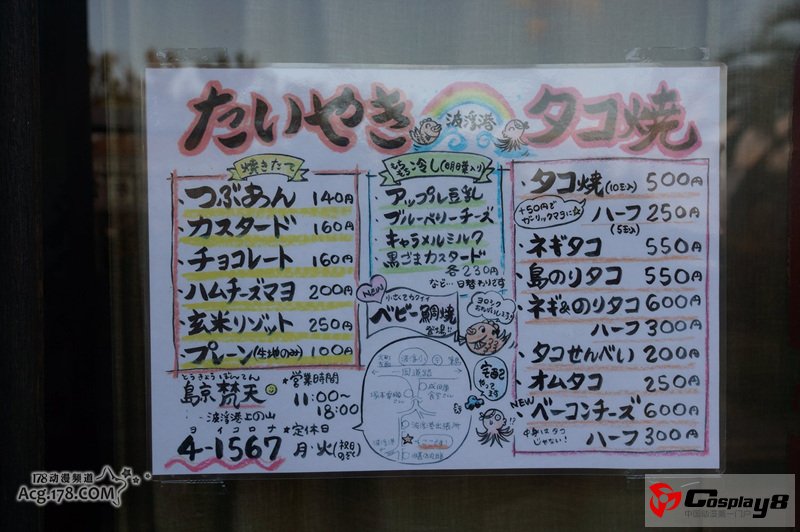 たいやき
波浮港
タコ焼
焼きたて
・つぶあん 140円
・カスタード 160円
・チョコレート 160円
・ハムチーズマヨ 200円
・玄米リゾット 250円
・プレーン(生地のみ) 100円
冷し(明日葉入り)
・アップル豆乳
・ブルーベリーチーズ
・キャラメルミルク
・黒ごまカスタード
各230円
など…日替わりです
NEW
小さくてカワイイ
ベビー鯛焼
登場!!
ヨロシク
・タコ焼(10コ入) 500円
+50円で
ガーリックマヨに
ハーフ 250円
(5コ入)
・ネギタコ 550円
・島のりタコ 550円
・ネギ&のりタコ 600円
ハーフ 300円
・タコせんべい 200円
・オムタコ 250円
NEW
・ベーコンチーズ 600円
ハーフ 300円
中身はタコ
じゃない!
とうきょうぼんてん
島京梵天
波浮港上の山
ヨイコロナ
4-1567
★営業時間
11:00〜
18:00
★定休日
月・火(祝日のぞく)
宅配
やって
ます
178动漫频道
Acg.178.COM
Cosplay8
中国动漫第一门户